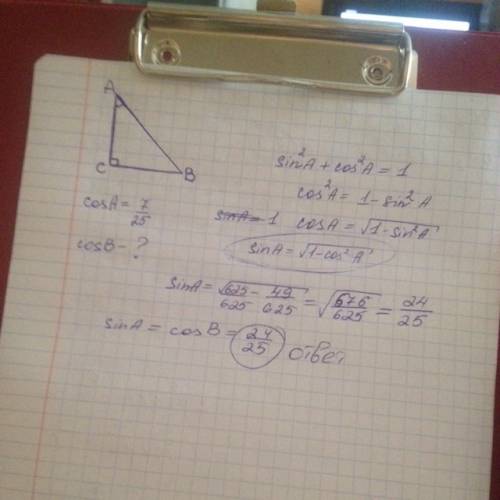 A
C
B
cosA = 7/25
cosB - ?
sin²A + cos²A = 1
cos²A = 1 - sin²A
sinA = 1 cosA = √1 - sin²A
sinA = √1 - cos²A
sinA = √625/625 - 49/625 = √576/625 = 24/25
sinA = cosB = 24/25 ответ